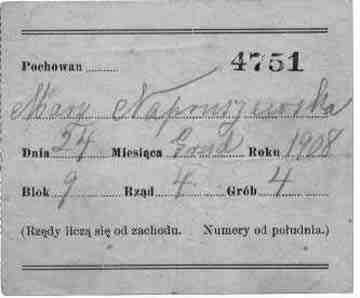 Pochowan 4751
Mary Napruszewska
Dnia 24 Miesiąca Grud Roku 1908
Blok 9 Rząd 4 Grób 4
(Rzędy liczą się od zachodu. Numery od południa.)